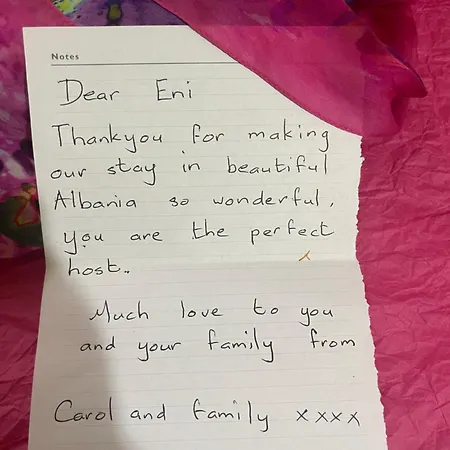 Notes
Dear Eni
Thankyou for making
our stay in beautiful
Albania so wonderful,
you are the perfect
host..
Much love to you
and your family from
Carol and family xxxx